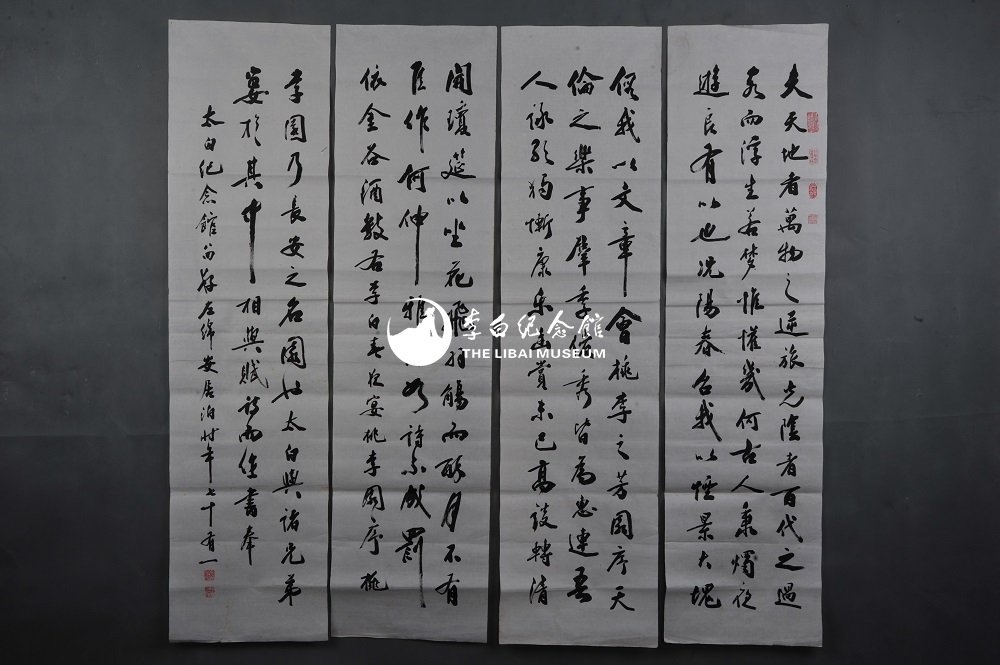 夫天地者萬物之逆旅光陰者百代之過
客而浮生若梦惟懽幾何古人秉燭夜
遊良有以也况陽春召我以煙景大塊
假我以文章會桃李之芳園序天
倫之樂事羣季俊秀皆為惠連吾
人詠歌獨慚康乐幽賞未已高談轉清
開瓊筵以坐花飛羽觴而醉月不有
佳作何伸雅 詩不成罰
依金谷酒數右李白春夜宴桃李園序桃
李園乃長安之名園也太白與諸兄弟
宴於其中相與賦詩而作書奉
太白纪念館 存左綿安居泊時年七十有一
李白纪念館
THE LIBAI MUSEUM